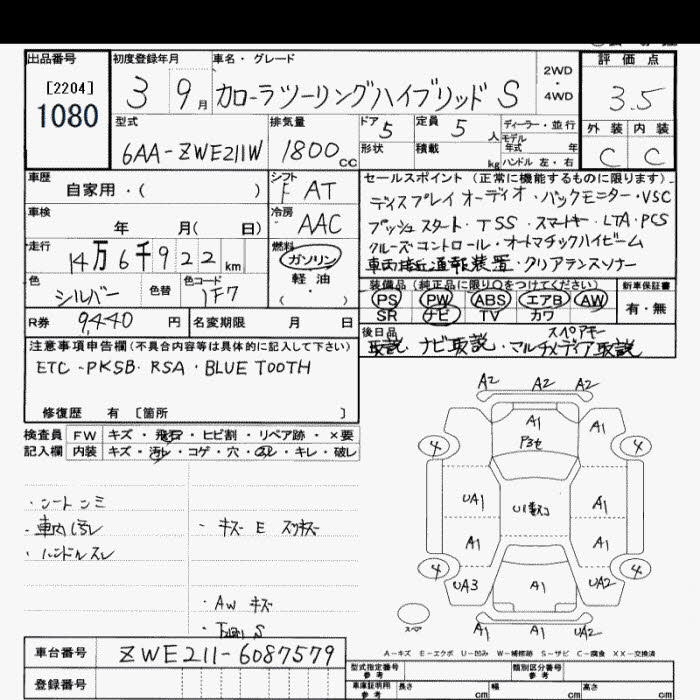 出品番号 初度登録年月 車名・グレード 評価点
[2204]
1080
3 9月 カローラツーリングハイブリッド S
2WD
・
4WD
3.5
型式 排気量 ドア 5 定員 5人 ディーラー・並行 外装 内装
6AA-ZWE211W 1800cc
形状 積載 kg
モデル年式 年
ハンドル 左・右
C C
車歴 自家用・( )
シフト F AT
セールスポイント(正常に機能するものに限ります)
ディスプレイオーディオ・バックモニター・VSC
プッシュスタート・TSS・スマートキー・LTA・PCS
クルーズコントロール・オートマチックハイビーム
車両接近通報装置・クリアランスソナー
車検 年 月( 日)
冷房 AAC
走行 14万6千922km
燃料 ガソリン
軽油
・
( )
色 シルバー 色替 色コード 1F7
装備品(純正品に限り○をつけてください) 新車保証書
PS PW ABS エアB AW
SR ナビ TV カワ
有・無
R券 9,440円 名変期限 月 日
後日品 スペアキー
取説・ナビ取説・マルチメディア取説
注意事項申告欄(不具合内容等は具体的に記入して下さい)
ETC・PKSB・RSA・BLUETOOTH
修復歴 有 [箇所 ]
検査員 FW キズ・飛石・ヒビ割・リペア跡・×要
記入欄 内装 キズ・汚レ・コゲ・穴・スレ・キレ・破レ
・シートシミ
・車内汚レ
・ハンドルスレ
・キズ E スリキズ
・AW キズ
・下廻り S
A2 A2 A2
A1 A1
4 4
UA1 A1
A1 A1
4 4
UA3 A1 UA2
スペア
A1 A1 UA2
A-キズ E-エクボ U-凹み W-補修跡 S-サビ C-腐食 XX-交換済
車台番号 ZWE211-6087579
登録番号
型式指定番号 参考 類別区分番号 参考
車庫証明用 参考 長さ cm 幅 cm 高さ cm